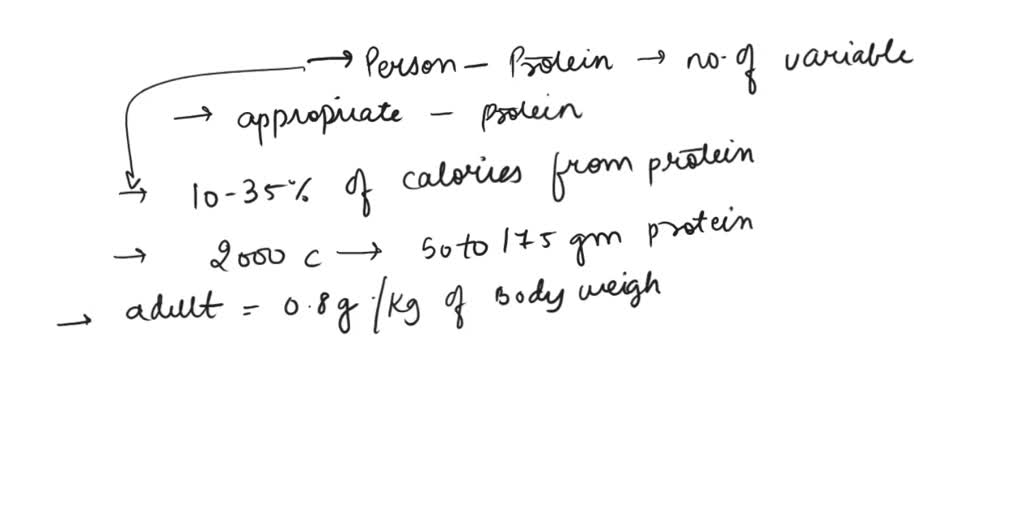 → Person - Protein → no. of variable
→ appropiuate - protein
→ 10-35% of calories from protein
→ 2000 c → 50 to 175 gm protein
→ adult = 0.8g/Kg of Body weigh